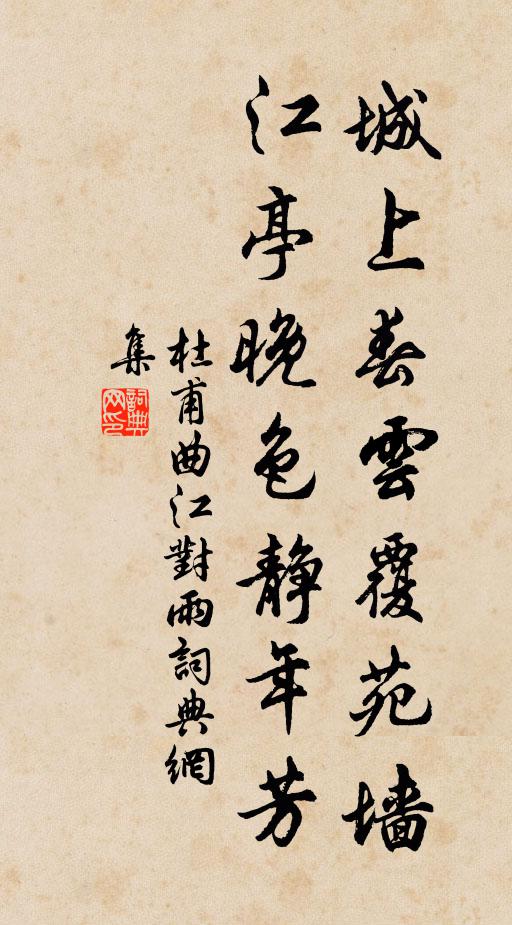 城上春雲覆苑墙
江亭晚色静年芳
杜甫曲江對雨詞典網
集
詞典网印